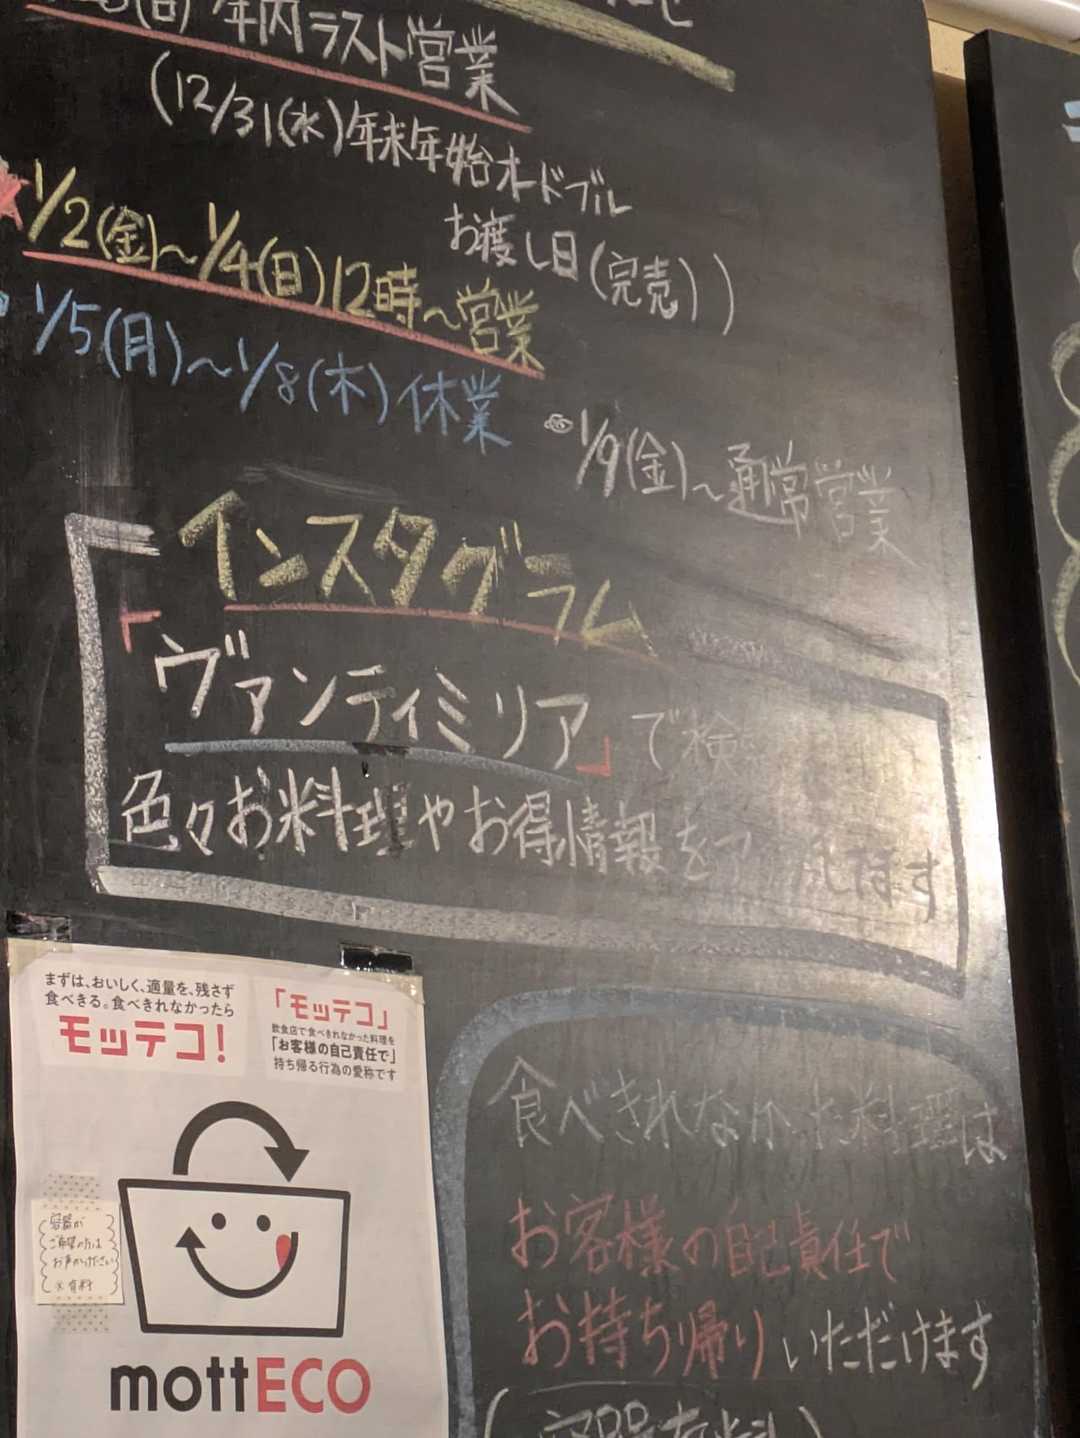 (日) 年内ラスト営業
(12/31(水)年末年始オードブル
お渡し日(完売))
1/2(金)〜1/4(日)12時〜営業
1/5(月)〜1/8(木)休業
1/9(金)〜通常営業
インスタグラム
「ヴァンティミリア」で検
色々お料理やお得情報を
ます
まずは、おいしく、適量を、残さず
食べきる。食べきれなかったら
モッテコ!
「モッテコ」
飲食店で食べきれなかった料理を
「お客様の自己責任で」
持ち帰る行為の愛称です
容器が
ご希望の方は
お声かけください
※有料
mottECO
食べきれなかったお料理は
お客様の自己責任で
お持ち帰りいただけます